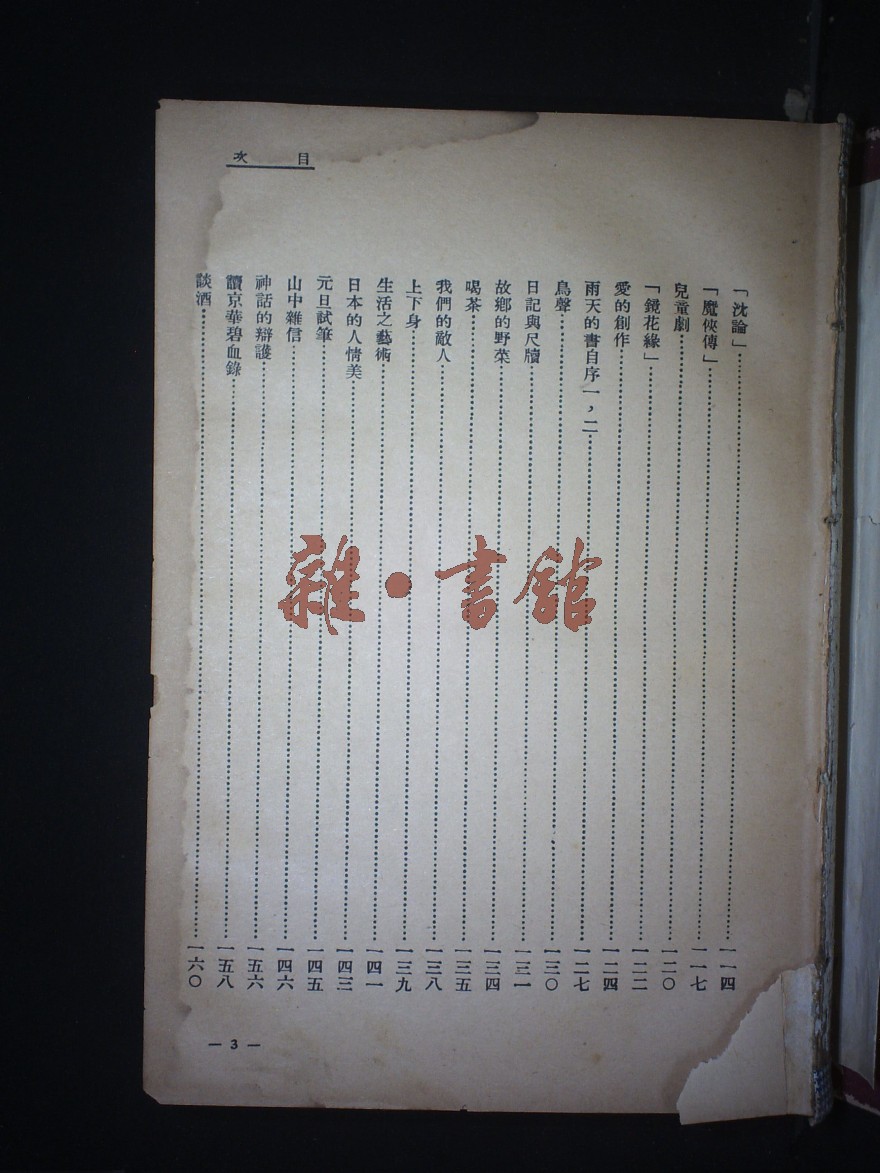 目次
「沈論」……一一四
「魔俠傳」……一一七
兒童劇……一二〇
「鏡花緣」……一二二
愛的創作……一二四
雨天的書自序一，二……一二七
鳥聲……一三〇
日記與尺牘……一三一
故鄉的野菜……一三四
喝茶……一三五
我們的敵人……一三八
上下身……一三九
生活之藝術……一四一
日本的人情美……一四三
元旦試筆……一四五
山中雜信……一四六
神話的辯護……一五六
讀京華碧血錄……一五八
談酒……一六〇
— 3 —
雜·書館